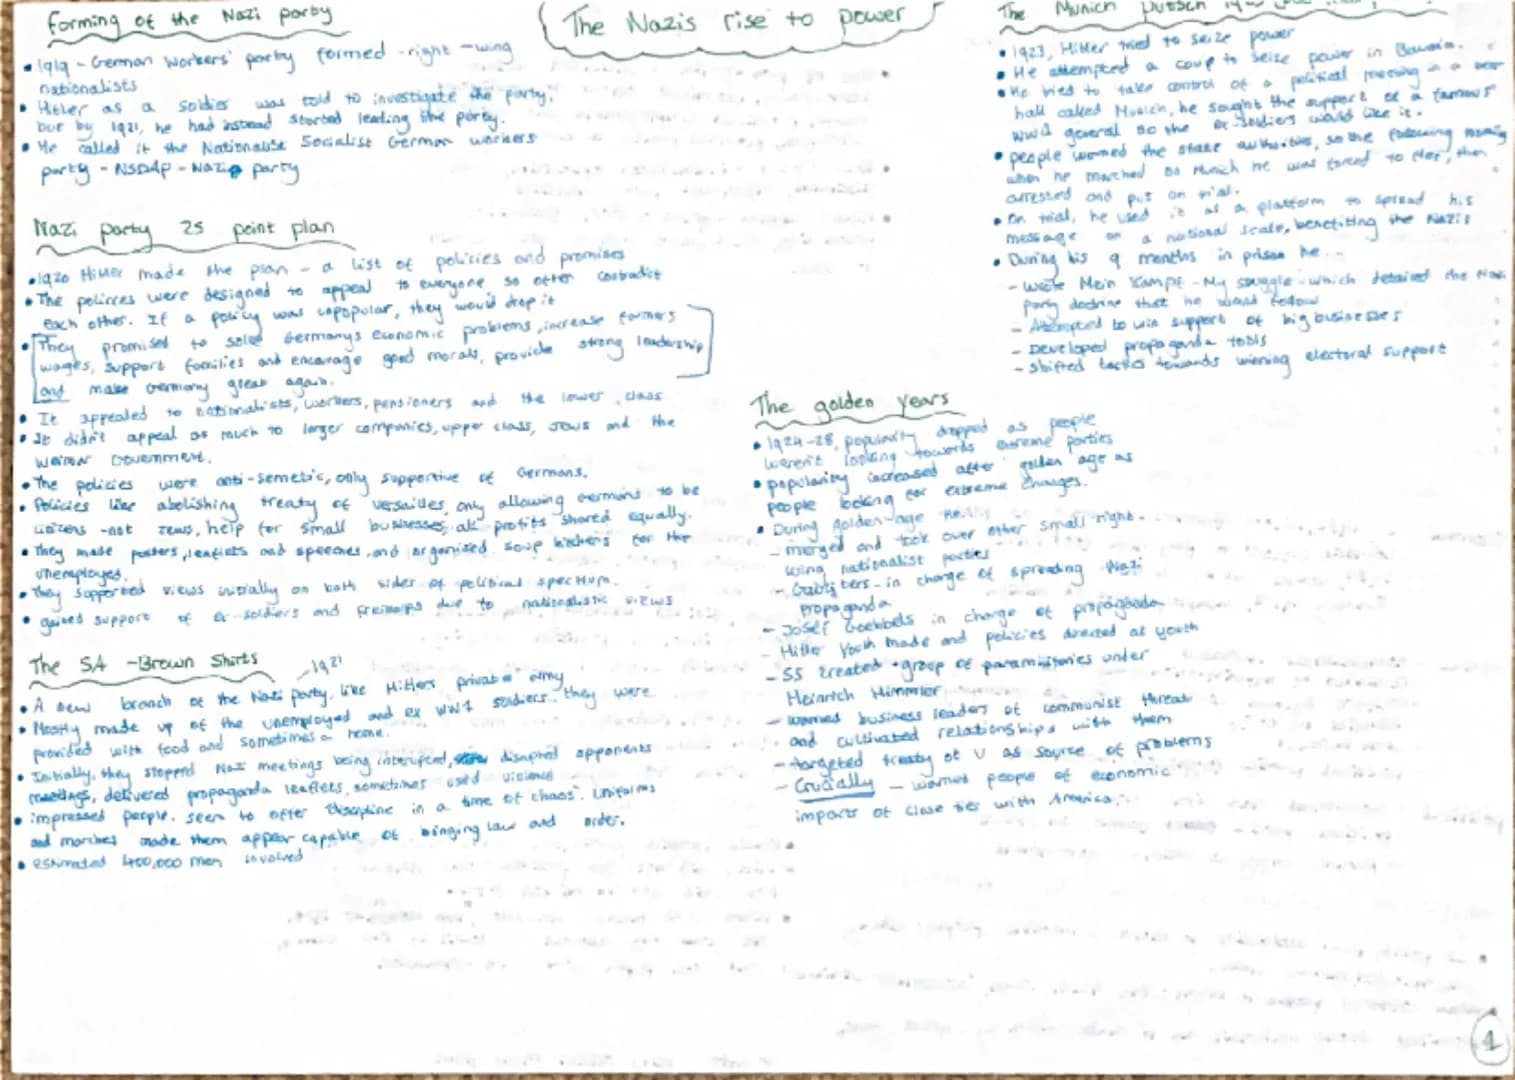 The Nazis rise to power
Forming of the Nazi party
• 1919 - German Workers' party formed - right - wing
nationalists
• Hitler as a soldier was told to investigate the party,
but by 1921, he had instead started leading the party.
• He called it the Nationalist Socialist German workers
party - NSDAP - Nazi party
Nazi party 25 point plan
• 1920 Hitler made the plan - a list of policies and promises
• The policies were designed to appeal to everyone, so often contradict
each other. If a policy was unpopular, they would drop it
• They promised to solve Germanys economic problems, increase farmers
wages, support families and encourage good morals, provide strong leadership
and make Germany great again.
• It appealed to nationalists, workers, pensioners and the lower class
• It didn't appeal as much to larger companies, upper class, Jews and the
Weimar Government.
• The policies were anti-semetic, only supportive of Germans.
• Policies like abolishing treaty of Versailles, only allowing Germans to be
citizens - not Jews, help for small businesses, all profits shared equally.
• They made posters, leaflets and speeches, and organised soup kitchens for the
unemployed.
• They supported views initially on both sides of political spectrum.
• gained support of ex-soldiers and freikorps due to nationalistic views
The SA - Brown Shirts
- 1921
• A new branch of the Nazi party, like Hitlers private army
• Mostly made up of the unemployed and ex WW1 soldiers. they were
provided with food and sometimes a home.
• Initially, they stopped Nazi meetings being interupted, disrupted opponents
meetings, delivered propaganda leaflets, sometimes used violence
• impressed people. seen to offer 'discipline in a time of chaos'. Uniforms
and marches made them appear capable of bringing law and order.
• estimated 400,000 men involved
The Munich putsch
• 1923, Hitler tried to seize power
• He attempted a coup to seize power in Bavaria.
• He tried to take control of a political meeting in a beer
hall called Munich, he sought the support of a famous
WW1 general so the ex-soldiers would like it.
• people warned the state authorities, so the following morning
when he marched on Munich he was forced to flee, then
arrested and put on trial.
• On trial, he used it as a platform to spread his
message on a national scale, benefitting the Nazis
• During his 9 months in prison he...
- Wrote Mein Kampf - My struggle - which detailed the Nazi
party doctrine that he would follow
- Attempted to win support of big businesses
- Developed propaganda tools
- Shifted tactics towards winning electoral support
The golden years
• 1924-28, popularity dropped as people
weren't looking towards extreme parties
• popularity increased after golden age as
people looking for extreme changes.
• During golden age
- merged and took over other small right-
wing nationalist parties
- in charge of spreading Nazi
propaganda
- Josef Goebbels in charge of propaganda
- Hitler Youth made and policies directed at youth
- SS created - group of paramilitaries under
Heinrich Himmler
- warned business leaders of communist threat
- and cultivated relationships with them
- targeted treaty of V as source of problems
- Crucially - warned people of economic
impacts of close ties with America.
1